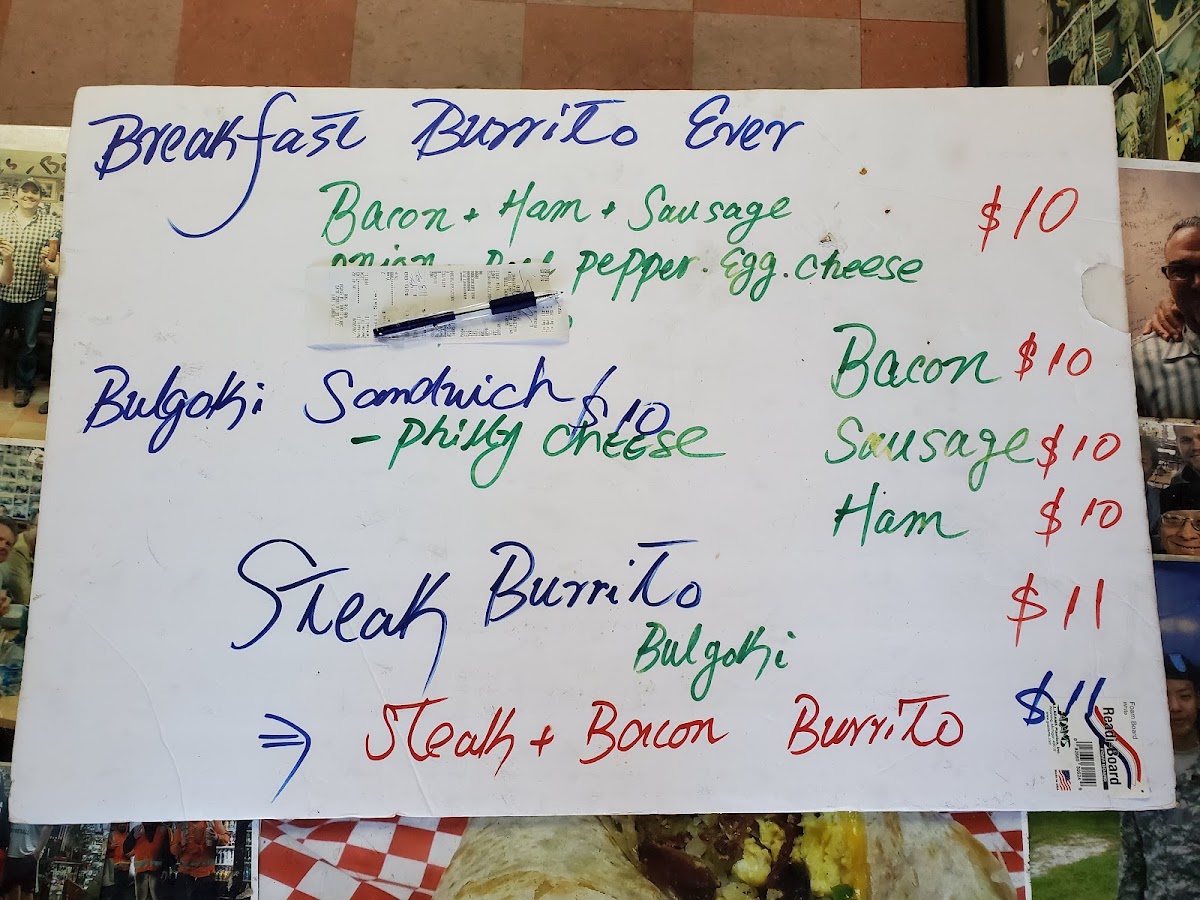 Breakfast Burrito Ever
Bacon + Ham + Sausage $10
onion pepper. Egg. cheese
Bacon $10
Bulgoki Sandwich $10
- Philly CHEESE
Sausage $10
Ham $10
Steak Burrito $11
Bulgoki
⇒ Steak + Bacon Burrito $11
Foam Board
Readi-Board